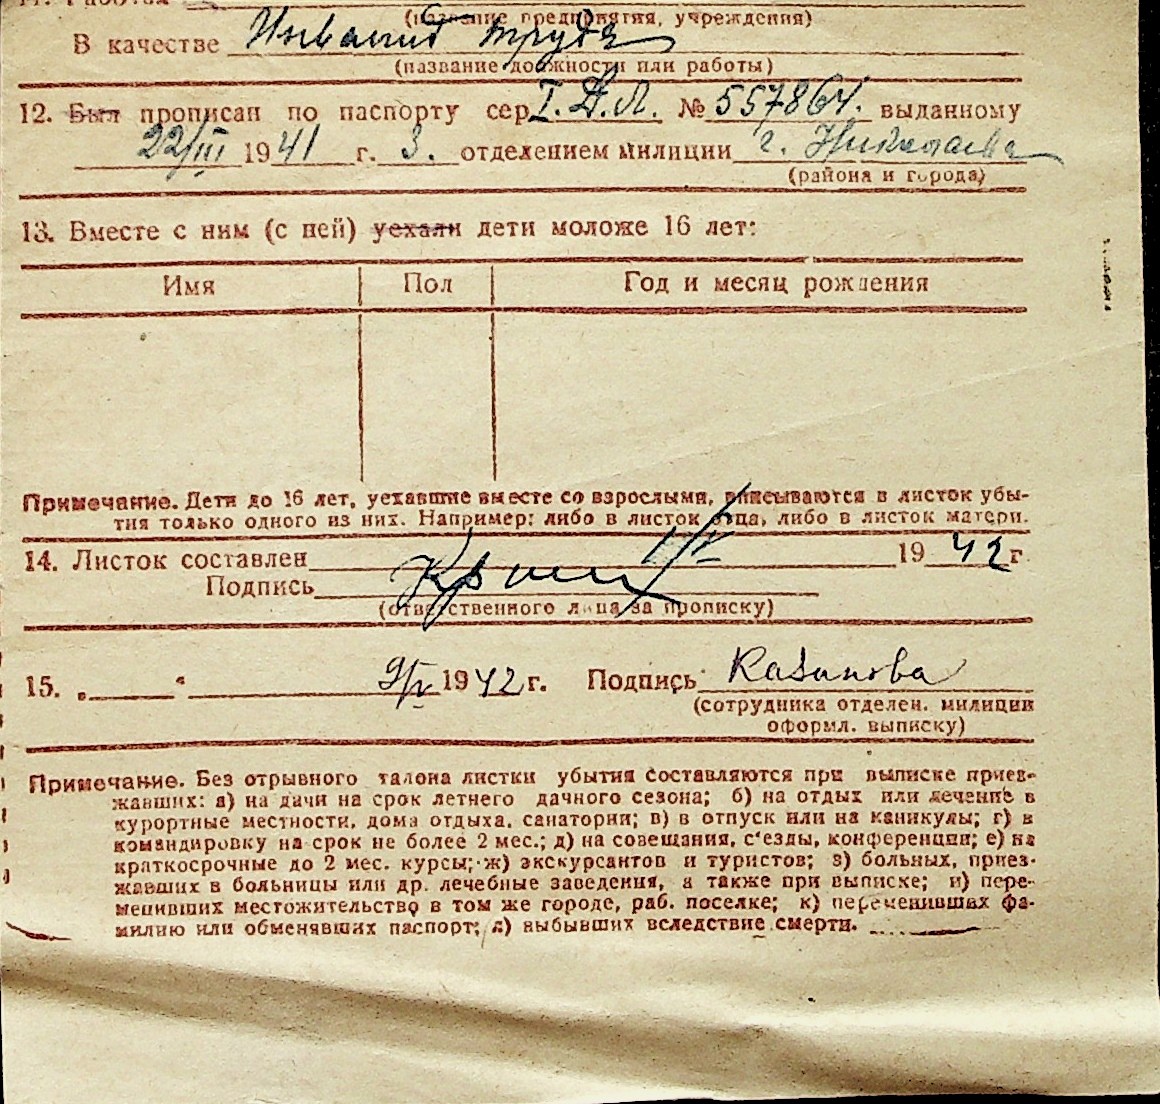 (название предприятия, учреждения)
В качестве Инвалид труда
(название должности или работы)
12. Был прописан по паспорту сер. I. Д. Л. № 557864. выданному
22/III 1941 г. 3. отделением милиции г. Николаева
(района и города)
13. Вместе с ним (с ней) уехали дети моложе 16 лет:
Имя Пол Год и месяц рождения
Примечание. Дети до 16 лет, уехавшие вместе со взрослыми, вписываются в листок убы-
тия только одного из них. Например: либо в листок отца, либо в листок матери.
14. Листок составлен 1942 г.
Подпись
(ответственного лица за прописку)
15. „ “ 9/V 1942 г. Подпись Казанова
(сотрудника отделен. милиции
оформл. выписку)
Примечание. Без отрывного талона листки убытия составляются при выписке приез-
жавших: а) на дачи на срок летнего дачного сезона; б) на отдых или лечение в
курортные местности, дома отдыха, санатории; в) в отпуск или на каникулы; г) в
командировку на срок не более 2 мес.; д) на совещания, с'езды, конференции; е) на
краткосрочные до 2 мес. курсы; ж) экскурсантов и туристов; з) больных, приез-
жавших в больницы или др. лечебные заведения, а также при выписке; и) пере-
менивших местожительство в том же городе, раб. поселке; к) переменивших фа-
милию или обменявших паспорт; л) выбывших вследствие смерти.